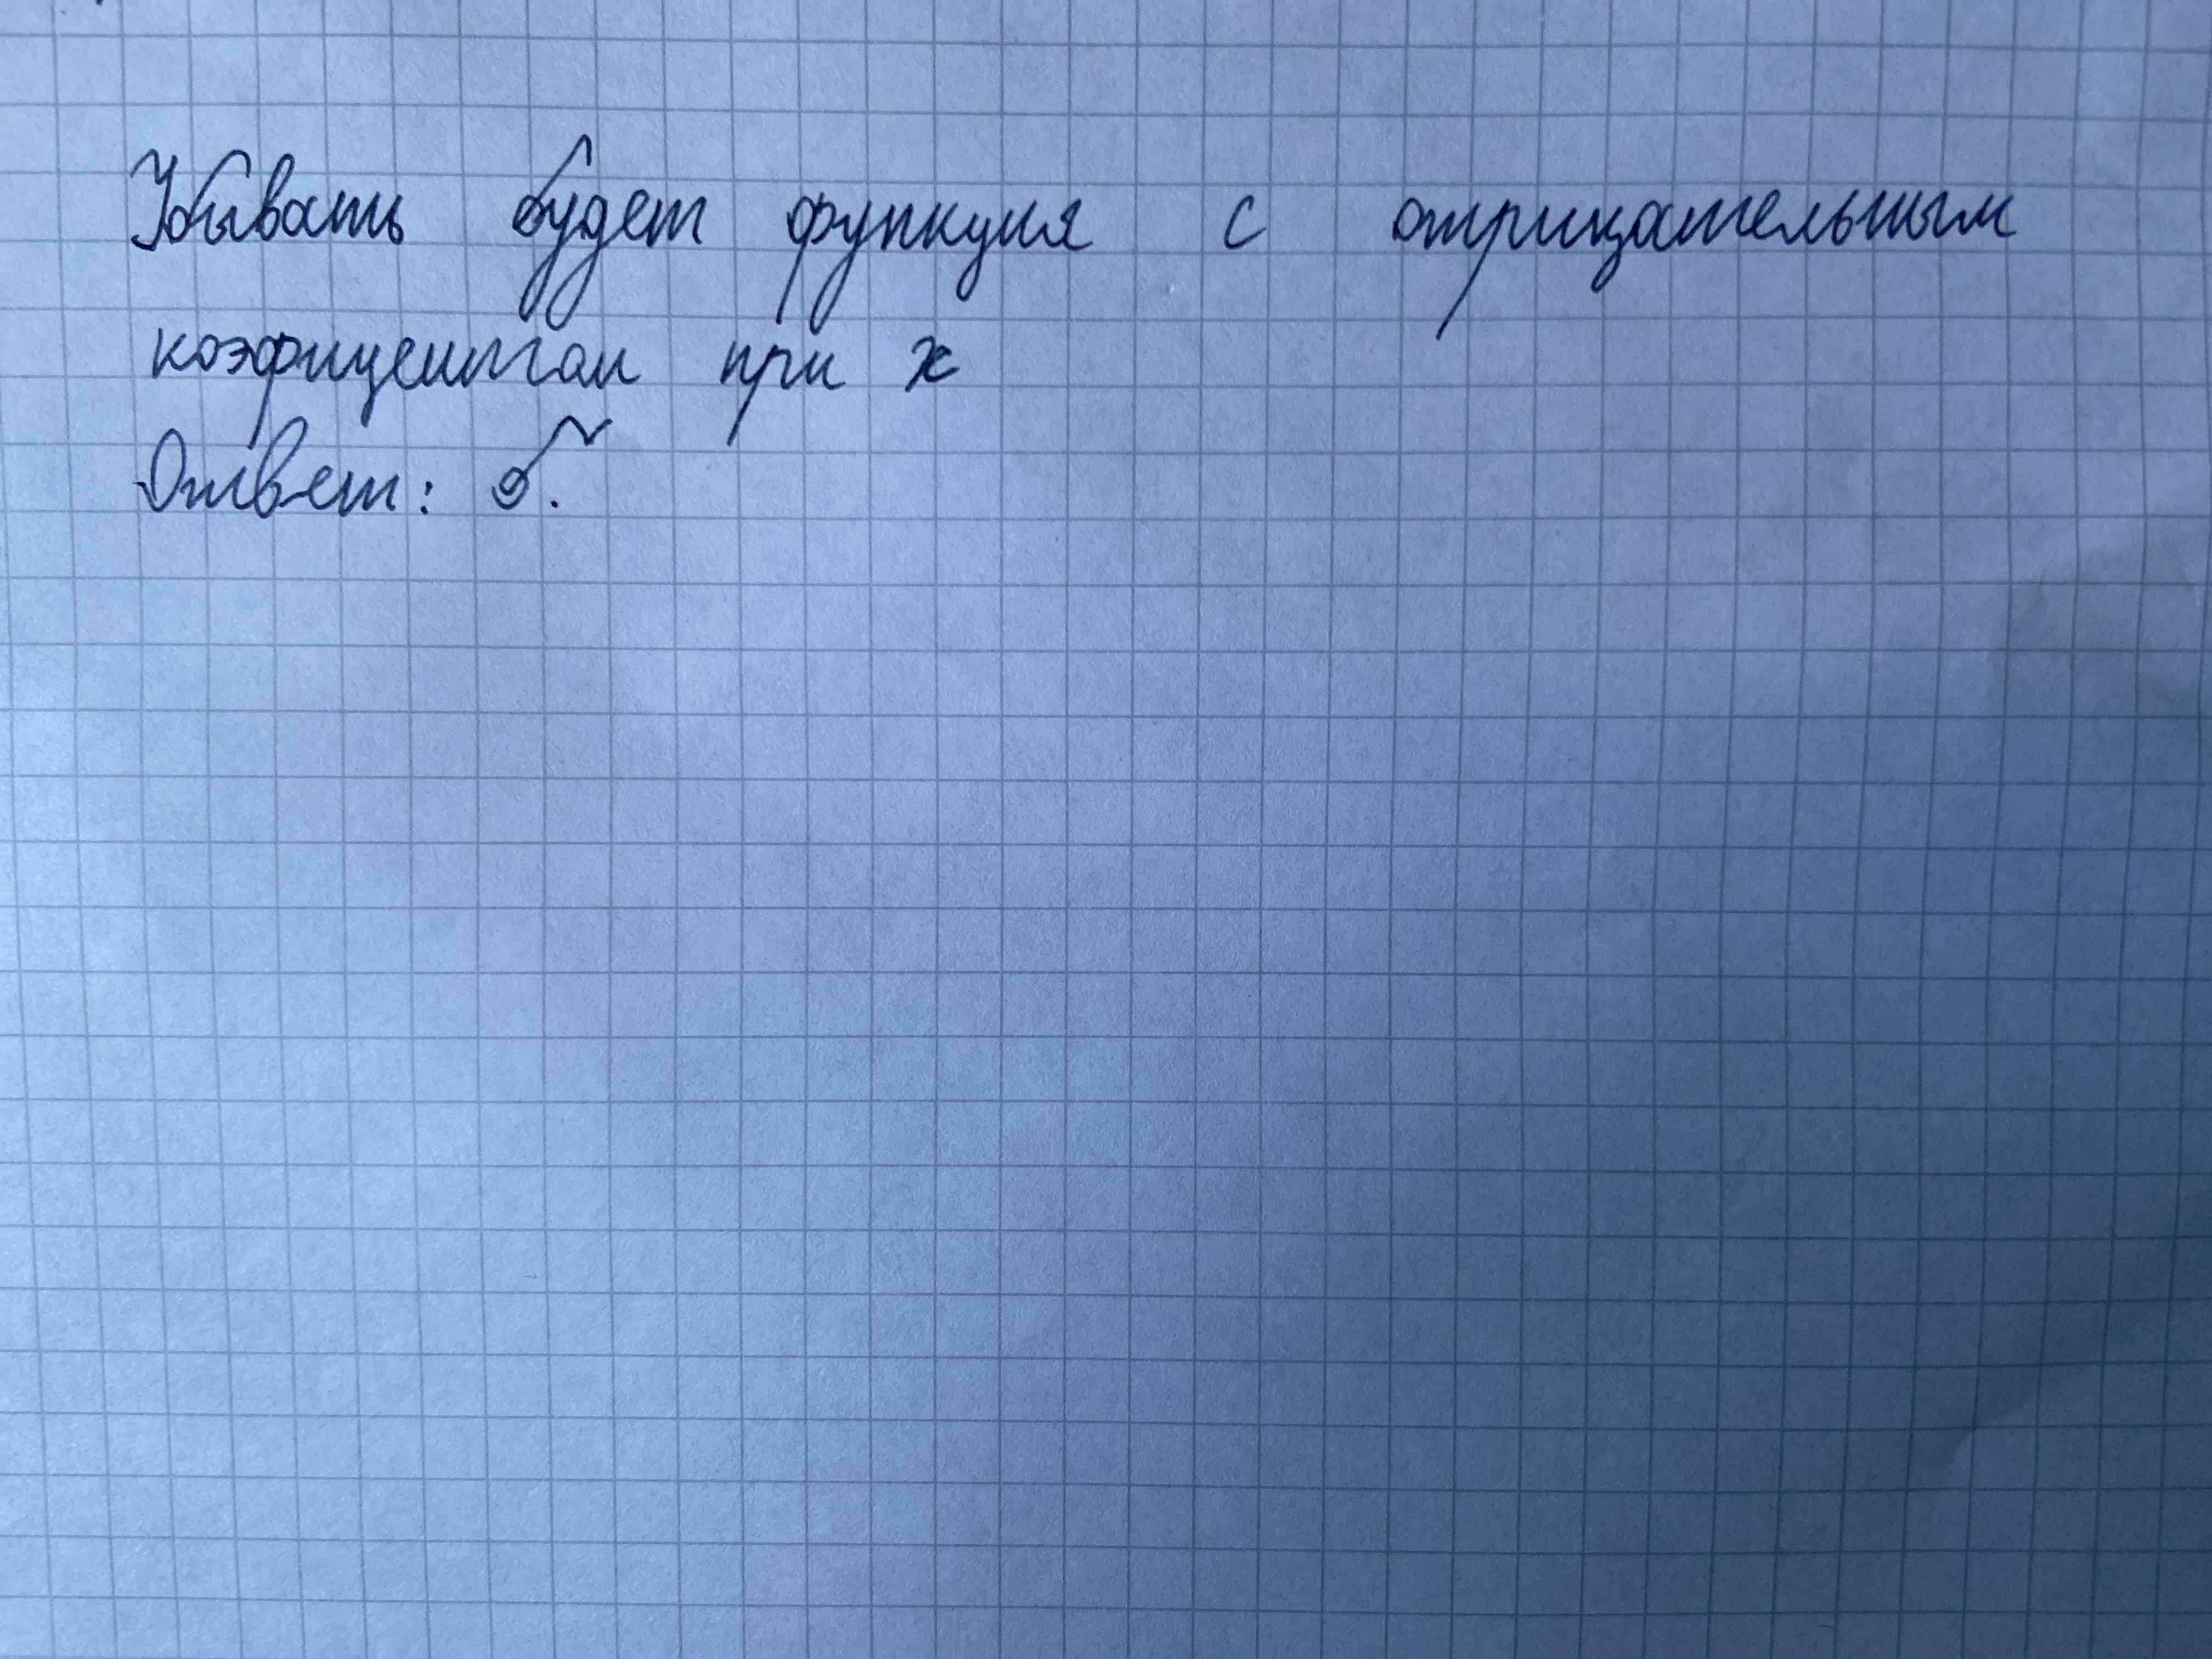 Убывать будет функция с отрицательным
коэфицентом при x
Ответ: б.